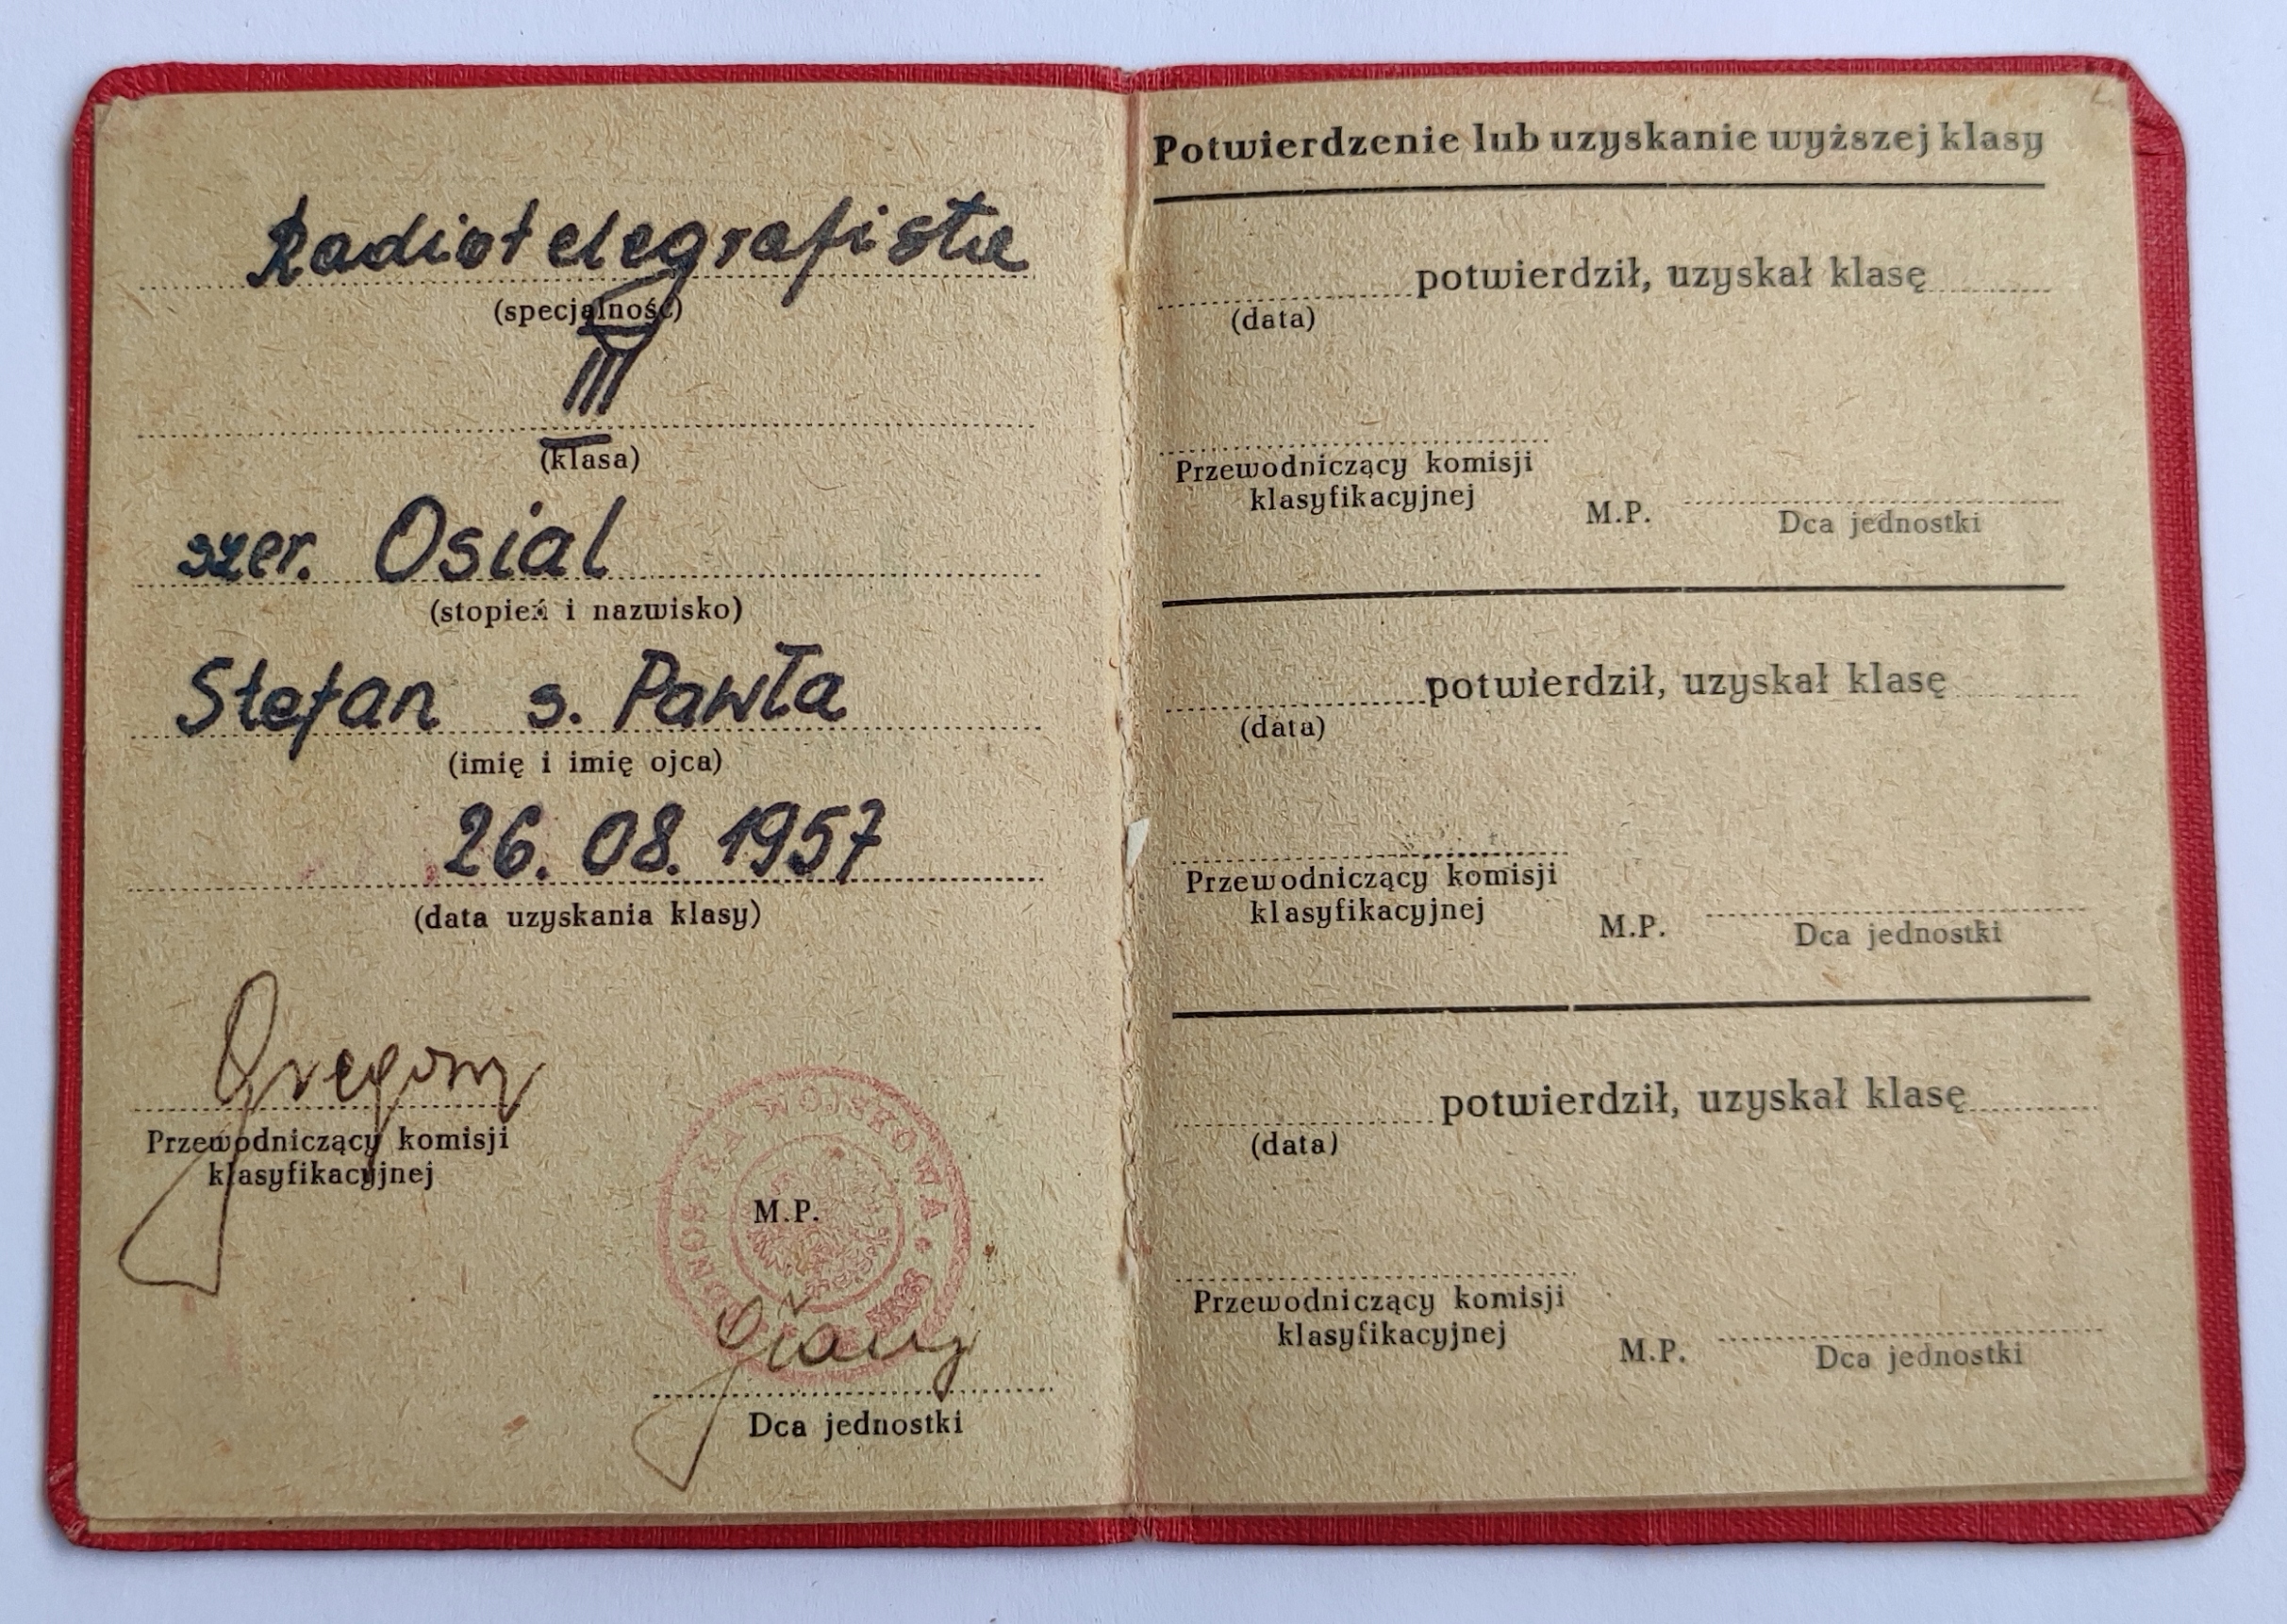 Radiotelegrafista
(specjalność)
III
(klasa)
szer. Osial
(stopień i nazwisko)
Stefan s. Pawła
(imię i imię ojca)
26. 08. 1957
(data uzyskania klasy)
Przewodniczący komisji
klasyfikacyjnej
JEDNOSTKA WOJSKOWA
M.P.
Dca jednostki
Potwierdzenie lub uzyskanie wyższej klasy
potwierdził, uzyskał klasę
(data)
Przewodniczący komisji
klasyfikacyjnej
M.P.
Dca jednostki
potwierdził, uzyskał klasę
(data)
Przewodniczący komisji
klasyfikacyjnej
M.P.
Dca jednostki
potwierdził, uzyskał klasę
(data)
Przewodniczący komisji
klasyfikacyjnej
M.P.
Dca jednostki